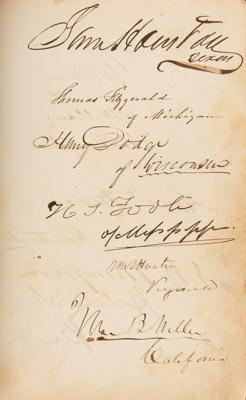 Sam Houston
Texas
Thomas Fitzgerald
of Michigan
Henry Dodge
of Wisconsin
H. S. Foote
of Mississippi
Hunter
Virginia
Miller
California